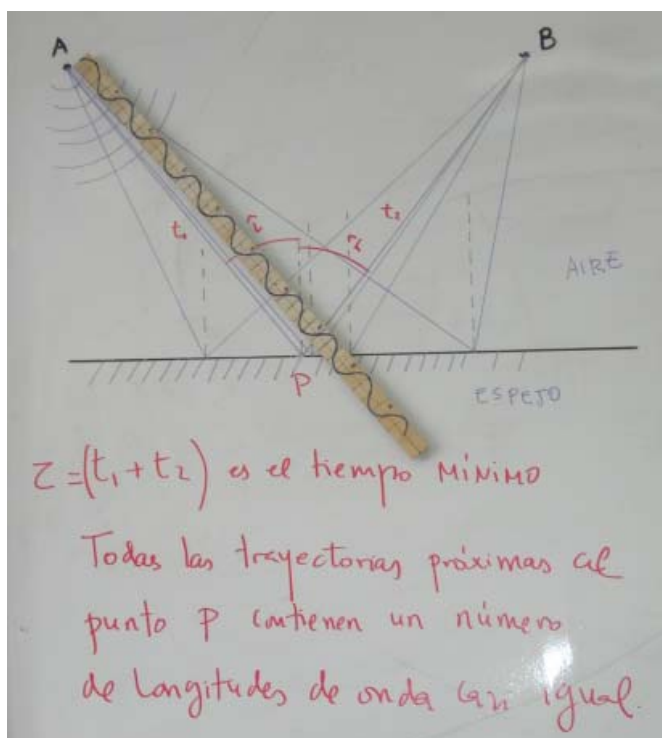 A
B
t₁
t₂
AIRE
P
ESPEJO
τ=(t₁+t₂) es el tiempo MÍNIMO
Todas las trayectorias próximas al
punto P contienen un número
de longitudes de onda casi igual.